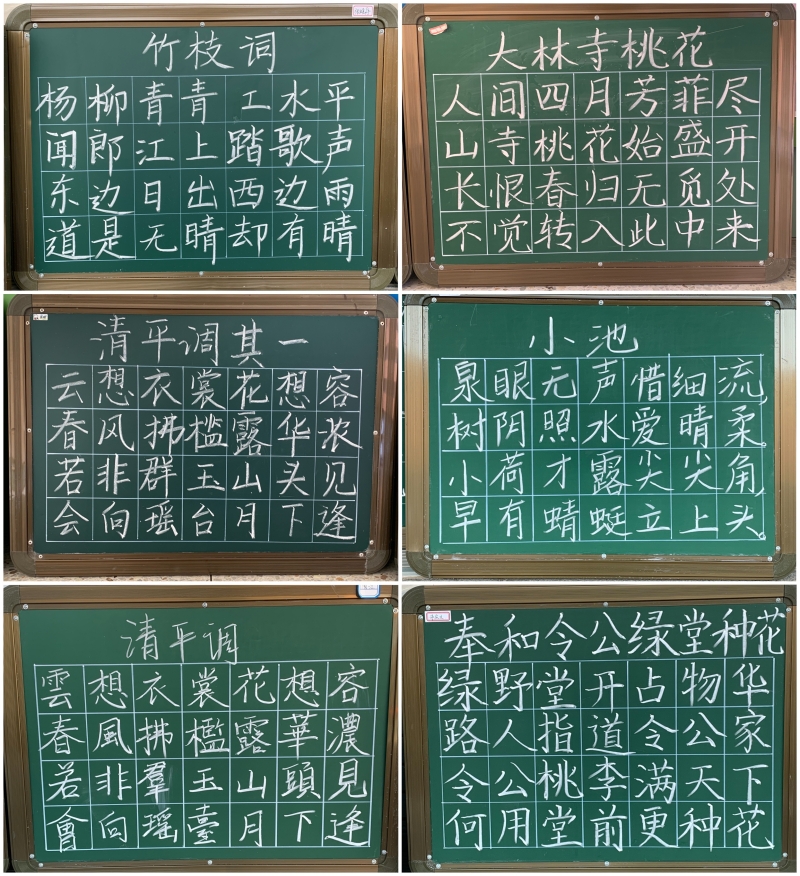 竹枝词
杨柳青青工水平
闻郎江上踏歌声
东边日出西边雨
道是无晴却有晴
大林寺桃花
人间四月芳菲尽
山寺桃花始盛开
长恨春归无觅处
不觉转入此中来
清平调其一
云想衣裳花想容
春风拂槛露华浓
若非群玉山头见
会向瑶台月下逢
小池
泉眼无声惜细流,
树阴照水爱晴柔。
小荷才露尖尖角,
早有蜻蜓立上头。
清平调
雲想衣裳花想容
春風拂檻露華濃
若非羣玉山頭見
會向瑶臺月下逢
奉和令公绿堂种花
绿野堂开占物华
路人指道令公家
令公桃李满天下
何用堂前更种花